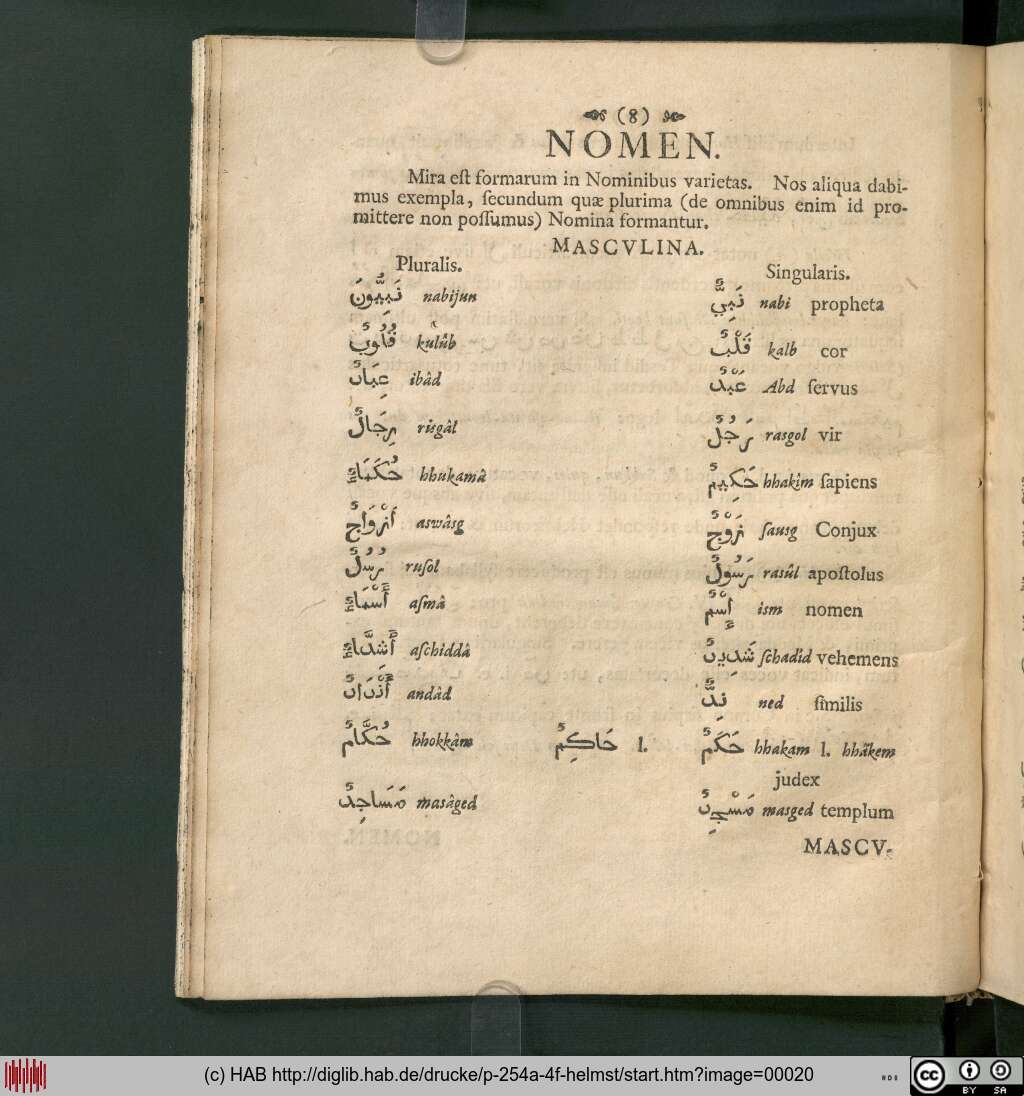 (8)
NOMEN.
Mira eſt formarum in Nominibus varietas. Nos aliqua dabi-
mus exempla, ſecundum quæ plurima (de omnibus enim id pro-
mittere non poſſumus) Nomina formantur.
MASCVLINA.
Pluralis. Singularis.
نَبِيُّونَ nabijun نَبِيٌّ nabi propheta
قُلُوبٌ kulûb قَلْبٌ kalb cor
عِبَادٌ ibâd عَبْدٌ Abd ſervus
رِجَالٌ risgâl رَجُلٌ rasgol vir
حُكَمَاءٌ hhukamâ حَكِيمٌ hhakim ſapiens
أَزْوَاجٌ aswâsg زَوْجٌ ſausg Conjux
رُسُلٌ ruſol رَسُولٌ rasûl apoſtolus
أَسْمَاءٌ aſmâ إِسْمٌ ism nomen
أَشِدَّاءٌ aſchiddâ شَدِيدٌ ſchadid vehemens
أَنْدَادٌ andâd نِدٌّ ned ſimilis
حُكَّامٌ hhokkâm حَاكِمٌ l. حَكَمٌ hhakam l. hhâkem
judex
مَسَاجِدٌ masâged مَسْجِدٌ masged templum
MASCV-
(c) HAB http://diglib.hab.de/drucke/p-254a-4f-helmst/start.htm?image=00020
cc BY SA